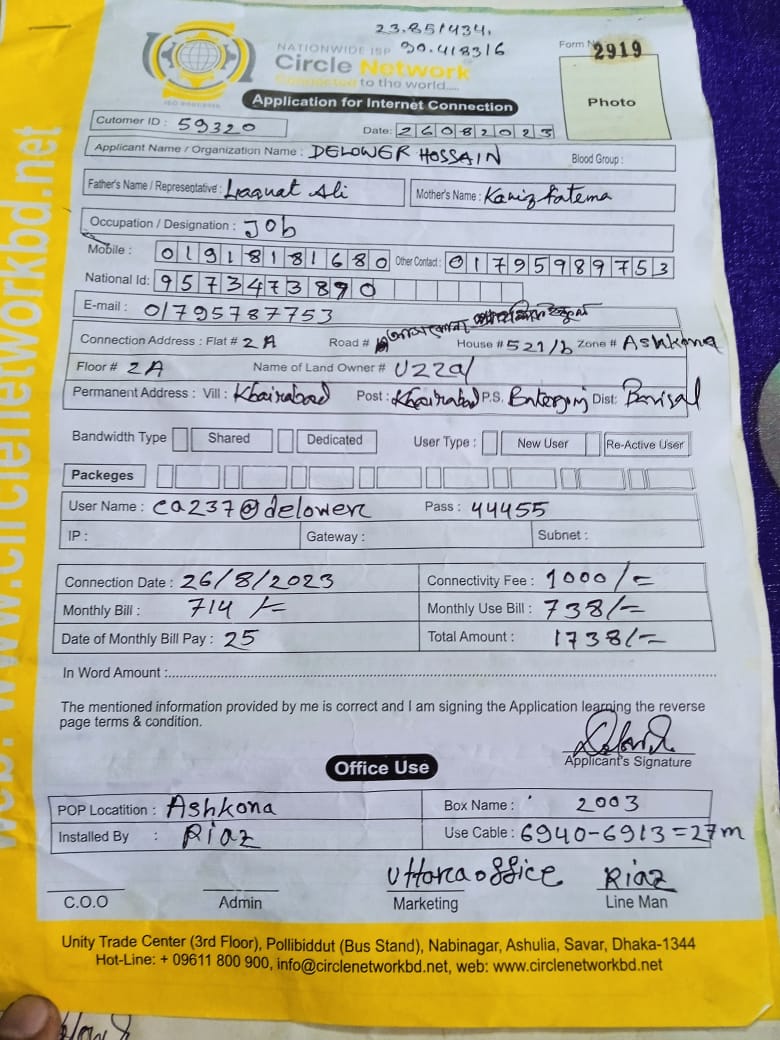 23.851434,
NATIONWIDE ISP 90.418316
Form No 2919
Circle Network
Connected to the world.....
Photo
Application for Internet Connection
Cutomer ID : 59320
Date: 26082023
Applicant Name / Organization Name : DELOWER HOSSAIN Blood Group :
Father's Name / Representative : Liaquat Ali Mother's Name : Kaniz Fatema
Occupation / Designation : JOb
Mobile : 01918181680 Other Contact : 01795989753
National Id: 9573473890
E-mail : 01795787753
Connection Address : Flat # 2A Road # House # 521/b Zone # Ashkona
Floor # 2A Name of Land Owner # Uzzal
Permanent Address : Vill : Khairabad Post : Khairabad P.S. Dist: Barisal
Bandwidth Type Shared Dedicated User Type : New User Re-Active User
Packeges
User Name : ca237@delower Pass : 44455
IP : Gateway : Subnet :
Connection Date : 26/8/2023 Connectivity Fee : 1000/=
Monthly Bill : 714/= Monthly Use Bill : 738/=
Date of Monthly Bill Pay : 25 Total Amount : 1738/=
In Word Amount :
The mentioned information provided by me is correct and I am signing the Application learning the reverse
page terms & condition.
Applicant's Signature
Office Use
POP Locatition : Ashkona Box Name : 2003
Installed By : Riaz Use Cable : 6940-6913=27m
Uttara office Riaz
C.O.O Admin Marketing Line Man
Unity Trade Center (3rd Floor), Pollibiddut (Bus Stand), Nabinagar, Ashulia, Savar, Dhaka-1344
Hot-Line: + 09611 800 900, info@circlenetworkbd.net, web: www.circlenetworkbd.net
web: www.circlenetworkbd.net